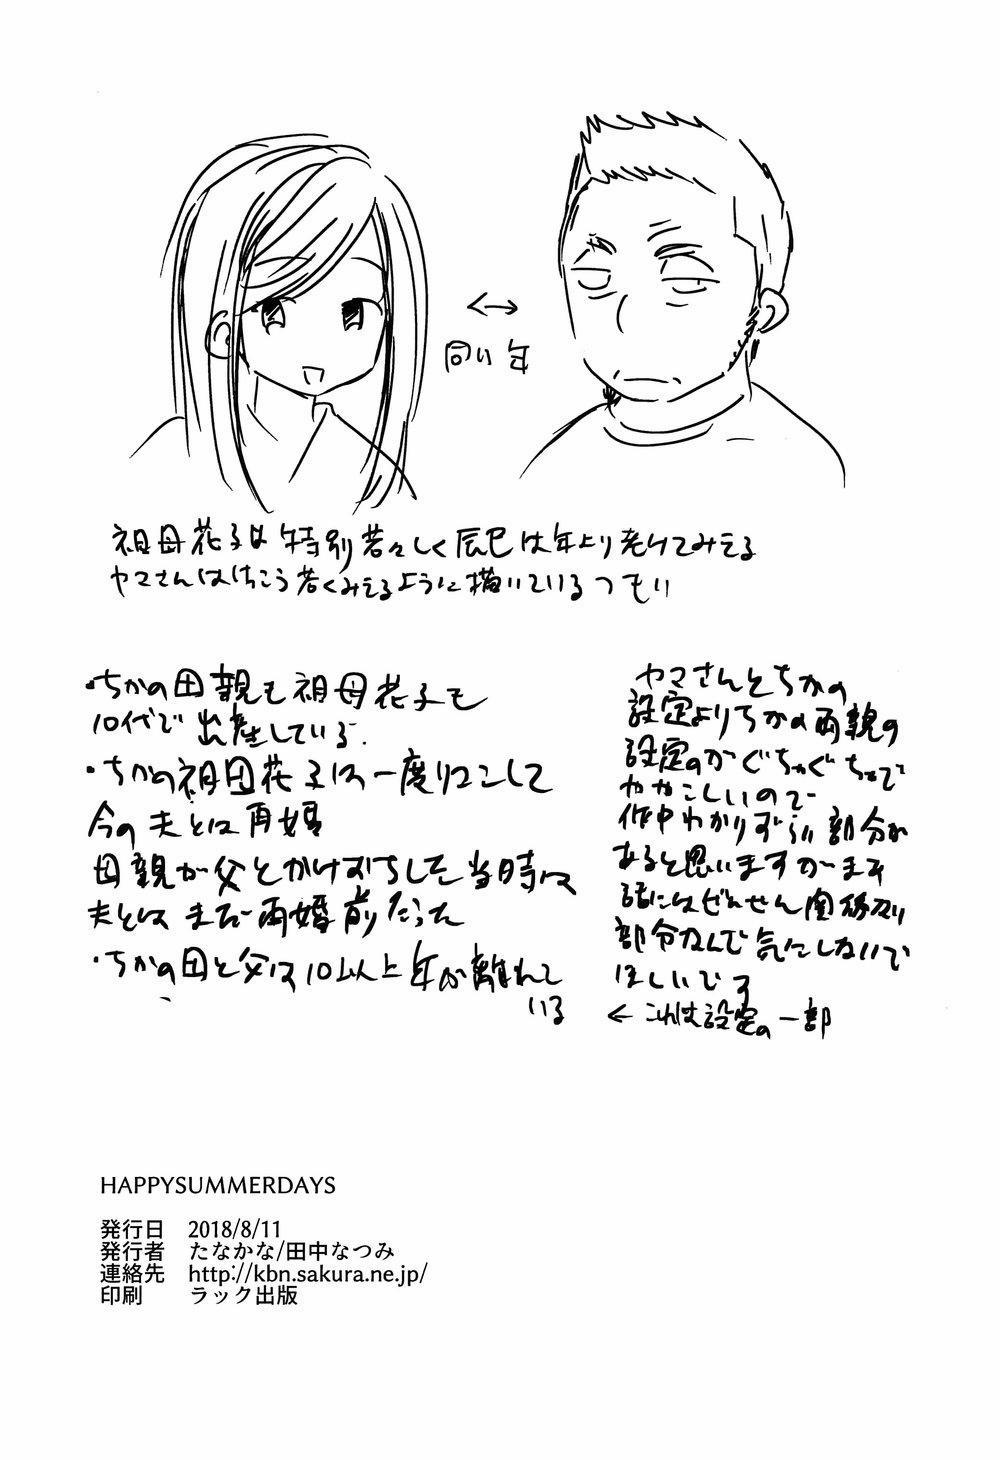 同い年
祖母花子は特別若々しく辰巳は年より老けてみえる
ヤマさんはけっこう若くみえるように描いているつもり
・ちかの母親も祖母花子も
10代で出産している.
・ちかの祖母花子は一度りこんして
今の夫とは再婚
母親が父とかけおちした当時は
夫とはまだ再婚前だった
・ちかの母と父は10以上年が離れて
いる
ヤマさんとちかの
設定よりちかの両親の
設定のがぐちゃぐちゃで
ややこしいので
作中わかりずらい部分が
あると思いますがまあ
話にはぜんぜん関係ない
部分なんで気にしないで
ほしいです
← これは設定の一部
HAPPYSUMMERDAYS
発行日 2018/8/11
発行者 たなかな/田中なつみ
連絡先 http://kbn.sakura.ne.jp/
印刷 ラック出版